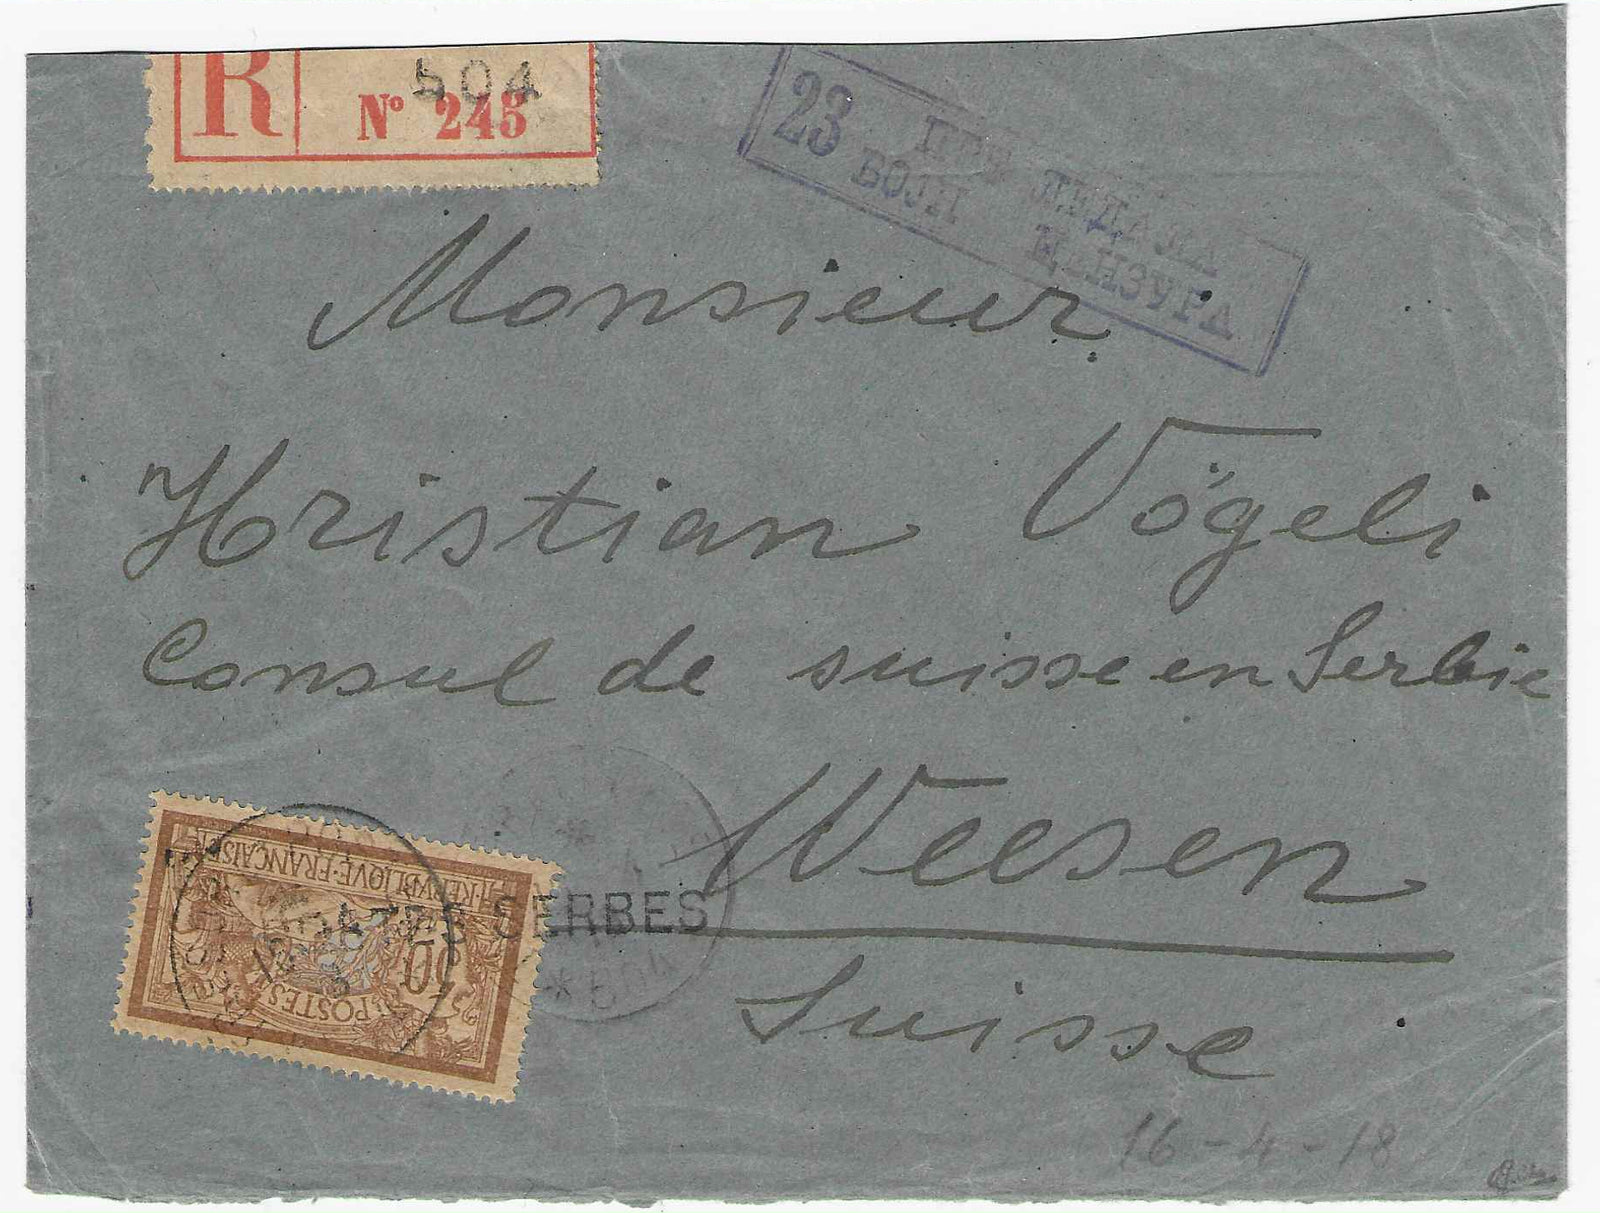 R
504
Nº 243
23 ПРЕГЛЕДАЛА
ВОЈН ЦЕНЗУРА
Monsieur
Hristian Vögeli
Consul de suisse en Serbie
Weesen
Suisse
REPVBLIQVE·FRANÇAISE
POSTES
50
SERBES
* 504
16-4-18